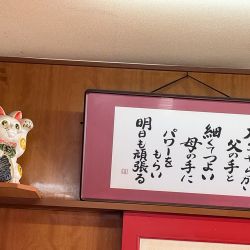 父の手と
細くつよい
母の手に
パワーを
もらい
明日も頑張る